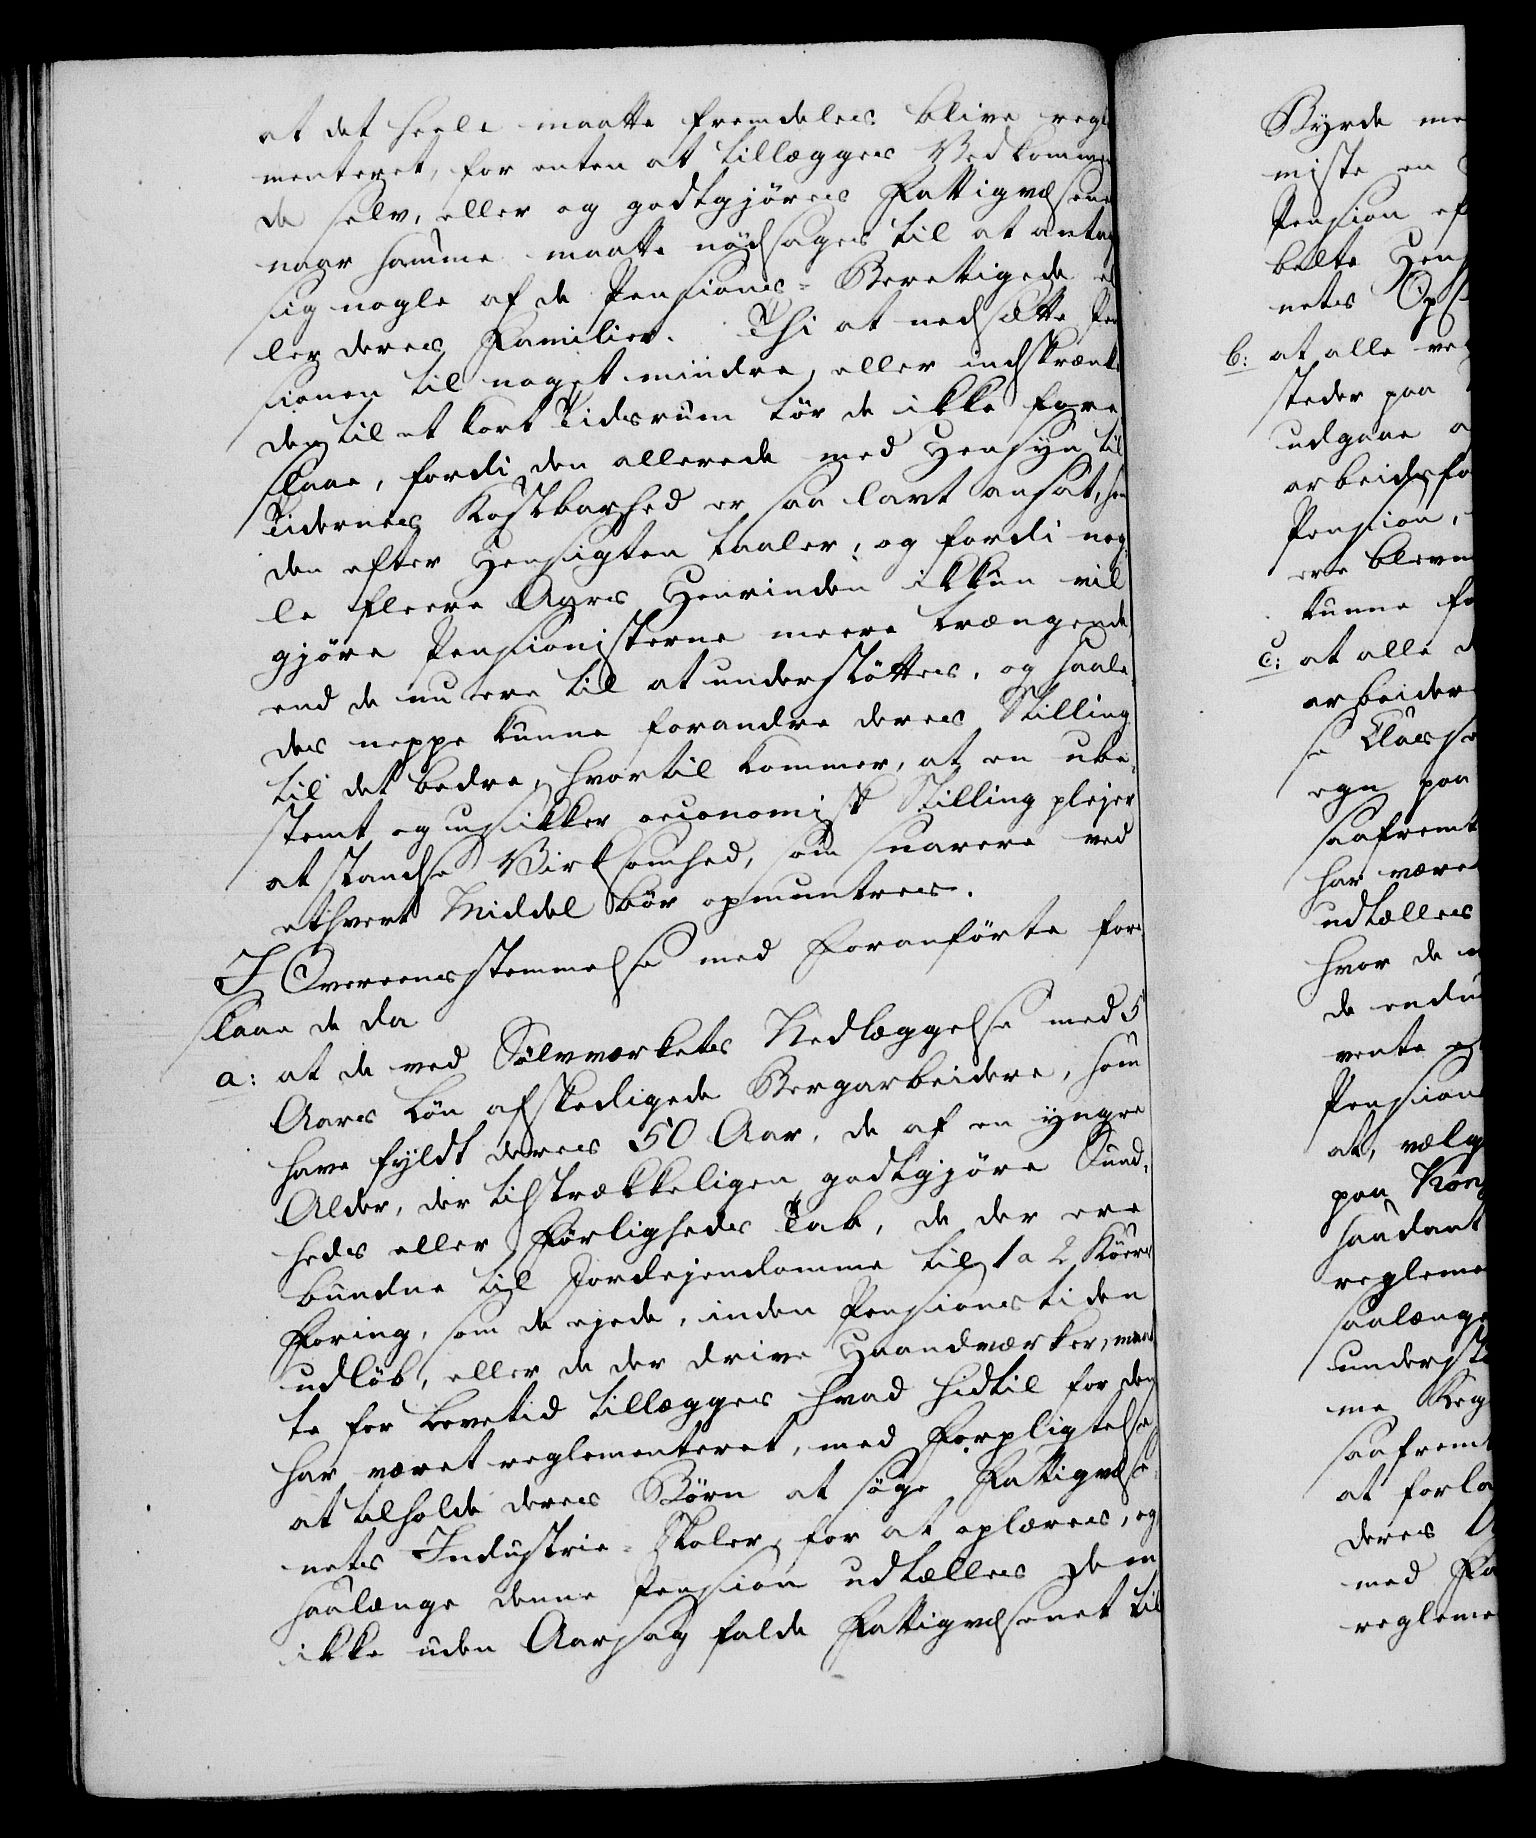 at det heele maatte fremdeles blive regle
menteret, for enten at tillægges Vedkommen
de selv, eller og godtgjöres Fattigvæsenet
naar samme maatte nödsages til at antage
sig nogle af de Pensions-Berettigede el
ler deres Familier. Thi at nedsætte Pen
sionen til noget mindre, eller indskrænke
den til et kort Tidsrum tör de ikke fore
slaae, fordi den allerede med Hensyn til
Tidernes Kostbarhed er saa lavt ansat, som
den efter Hensigten taaler; og fordi nog
le fleere Aars Henrinden ikkun vil
gjöre Pensionisterne meere trængende
end de nu ere til at understöttes, og saale
des neppe kunne forandre deres Stilling
til det bedre, hvortil kommer, at en ube
stemt og usikker oeconomisk Stilling plejer
at standse Virksomhed, som snarere ved
ethvert Middel bör opmuntres.
I Overeensstemmelse med Foranförte fore
slaae de da
a: at de ved Sölvværkets Nedlæggelse med 5
Aars Lön afskedigede Bergarbeidere, som
have fyldt deres 50 Aar, de af en yngre
Alder, der tilstrækkeligen godtgjöre Sund
heds eller Förligheds Tab, de der ere
bundne til Jordejendomme til 1 a 2 Köers
Foring, som de ejede, inden Pensionstiden
udlöb, eller de der drive Haandværker, maat
te for Levetid tillægges hvad hidtil for dem
har været reglementeret, med Forpligtelse
at tilholde deres Börn at söge Fattigvæse
nets Industrie-Skoler, for at oplæres, og
saalænge denne Pension udtælles dem
ikke uden Aarsag falde Fattigvæsenet til
Byrde
miste en
Pension
b: at alle
steder paa
udgaae
Pension,
ere
kunne
c: at alle
egn paa
saafremt
har være
udtælles
hvor de
de
vente
Pension
at, vælg
paa Kong
saadant
saalænge
saafremt
deres
med